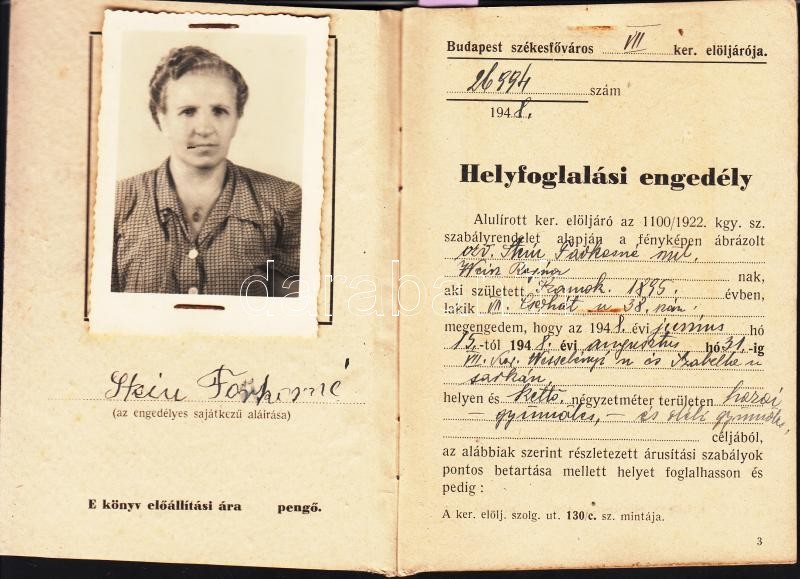 Stein Farkasné
(az engedélyes sajátkezű aláirása)
E könyv előállítási ára pengő.
Budapest székesfőváros VII ker. elöljárója.
26994 szám
1948.
Helyfoglalási engedély
Alulírott ker. elöljáró az 1100/1922. kgy. sz.
szabályrendelet alapján a fényképen ábrázolt
özv. Stein Farkasné szül.
Weisz Regina nak,
aki született Szamok. 1895. évben,
lakik VII. u 38. szám.
megengedem, hogy az 1948. évi junius hó
15.-tól 1948. évi augusztus hó 31.-ig
VII. ker. Wesselényi u és Izabella u
sarkán
helyen és kettő négyzetméter területen hazai
— gyümölcs, — és déli gyümölcs,
céljából,
az alábbiak szerint részletezett árusítási szabályok
pontos betartása mellett helyet foglalhasson és
pedig :
A ker. elölj. szolg. ut. 130/c. sz. mintája.
3
darabanth